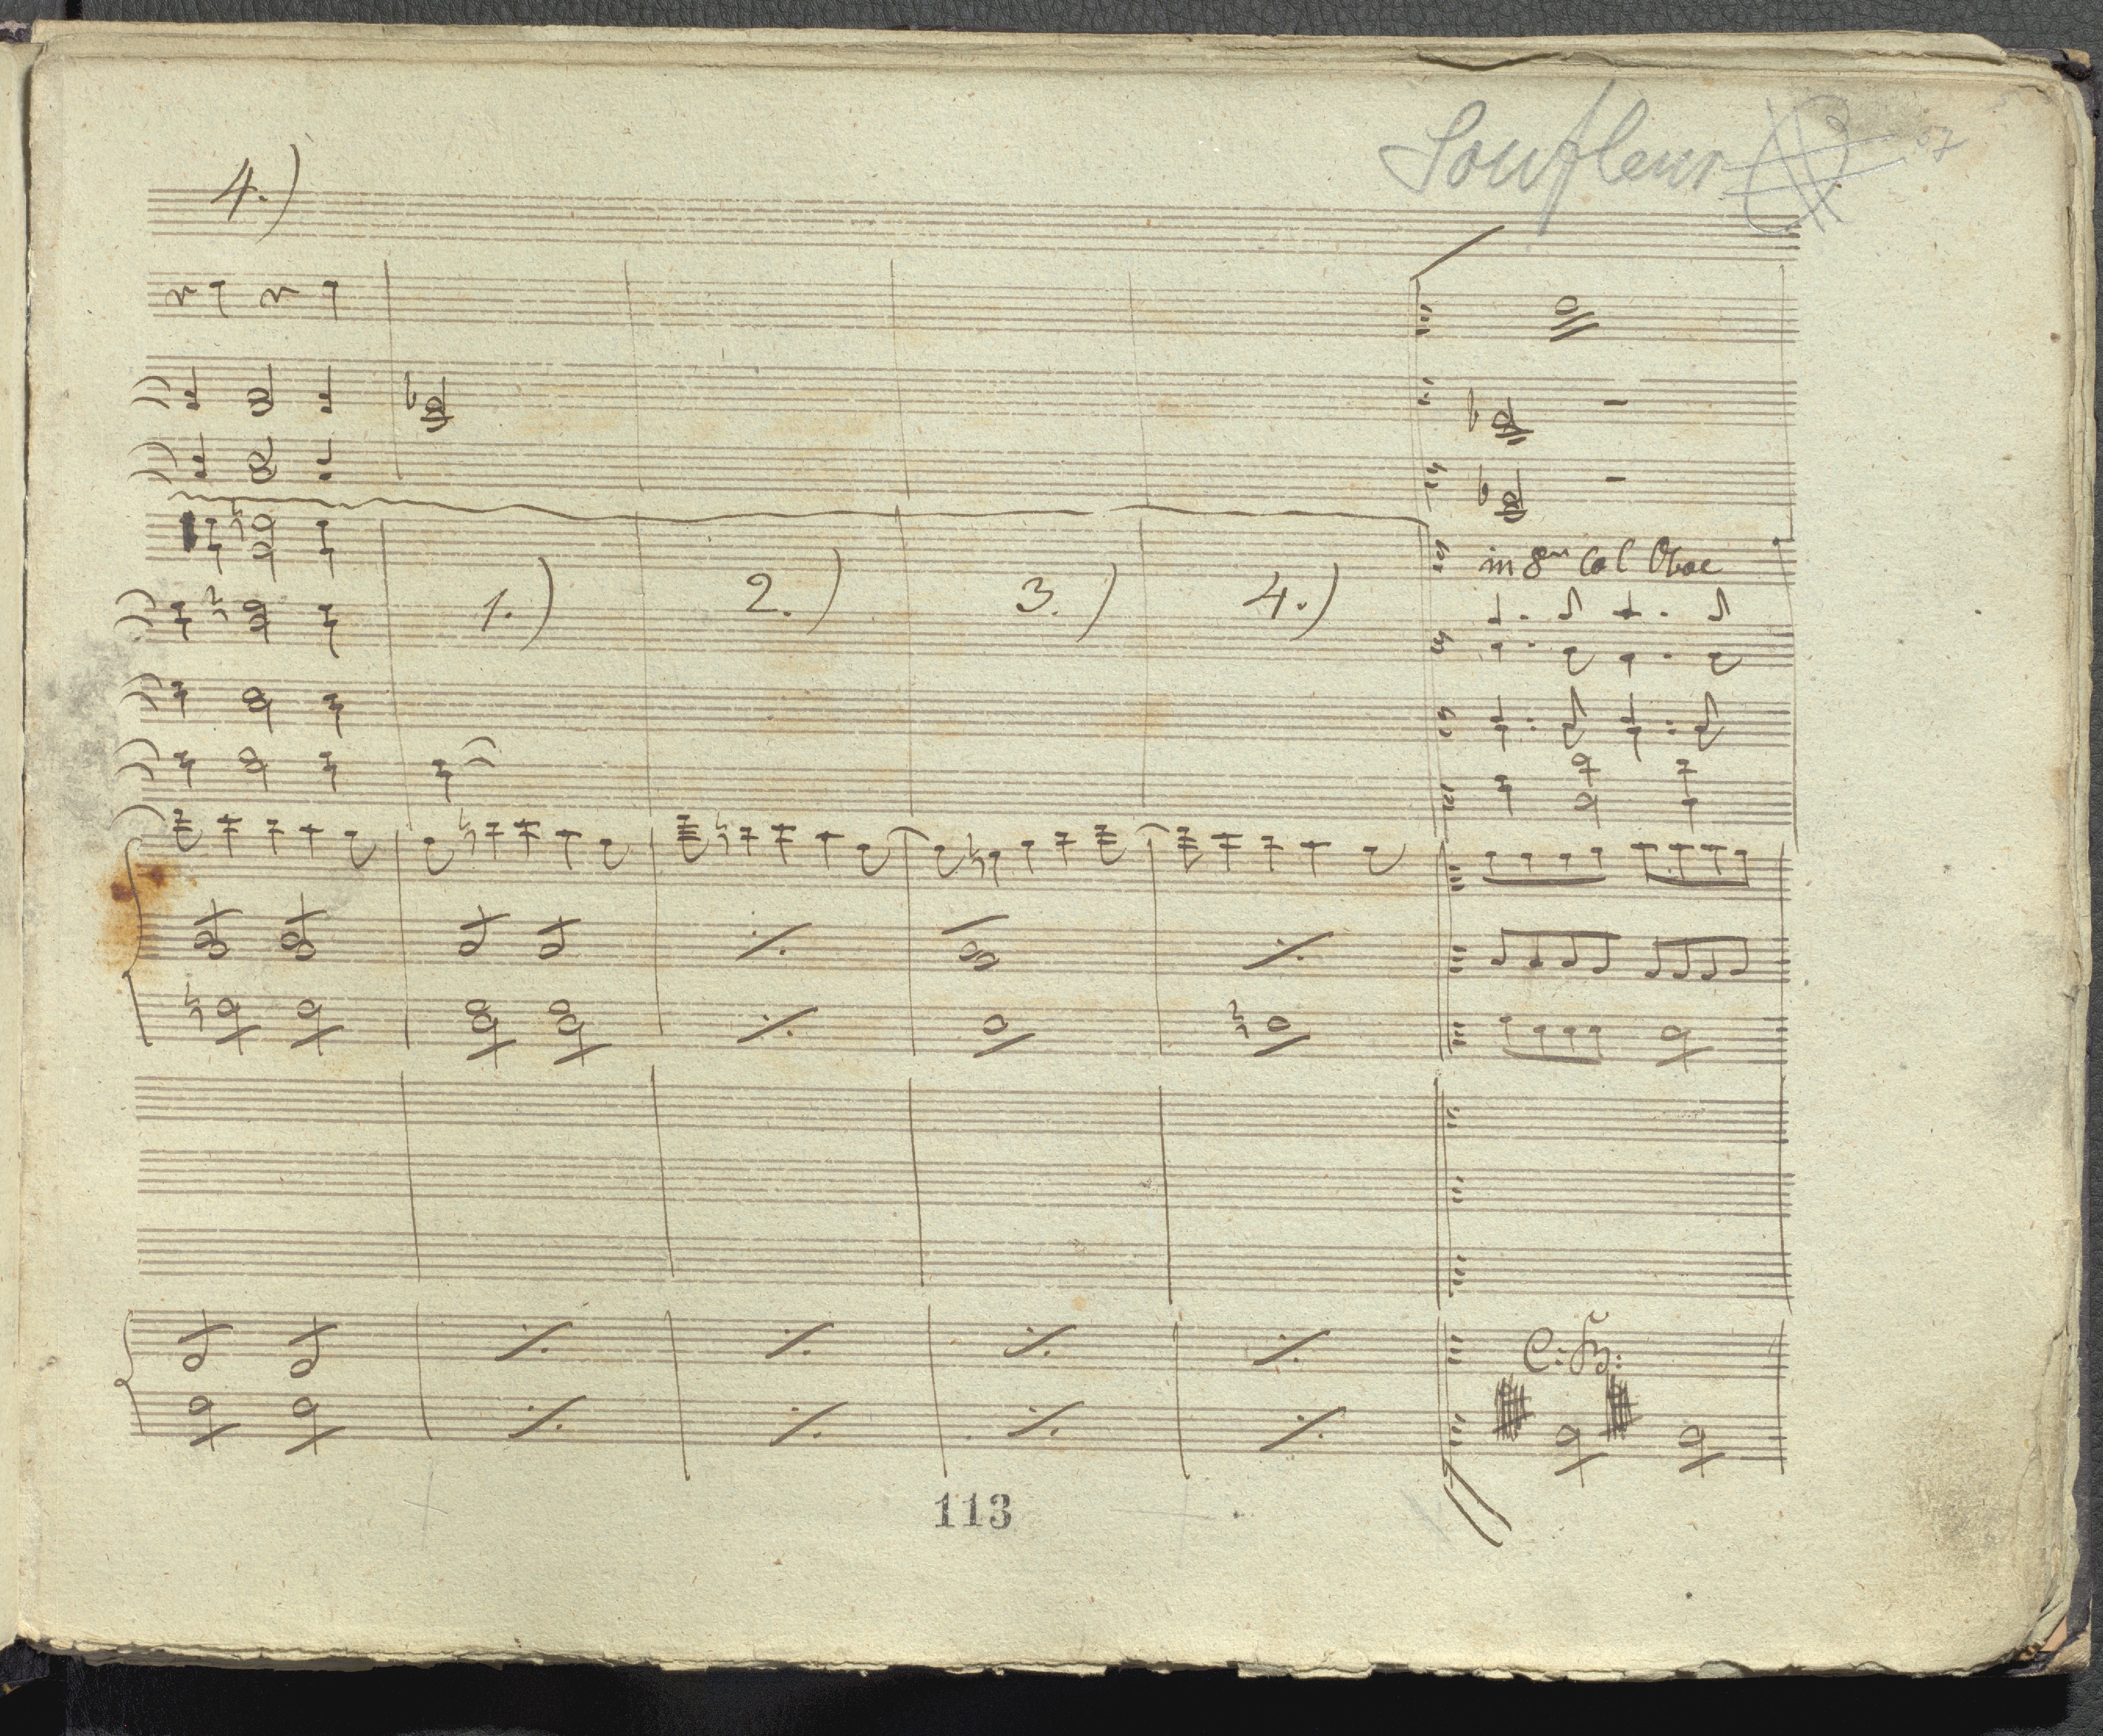 Soufleur 57
4.)
in 8va Col Oboe
1.) 2.) 3.) 4.)
C: B:
113